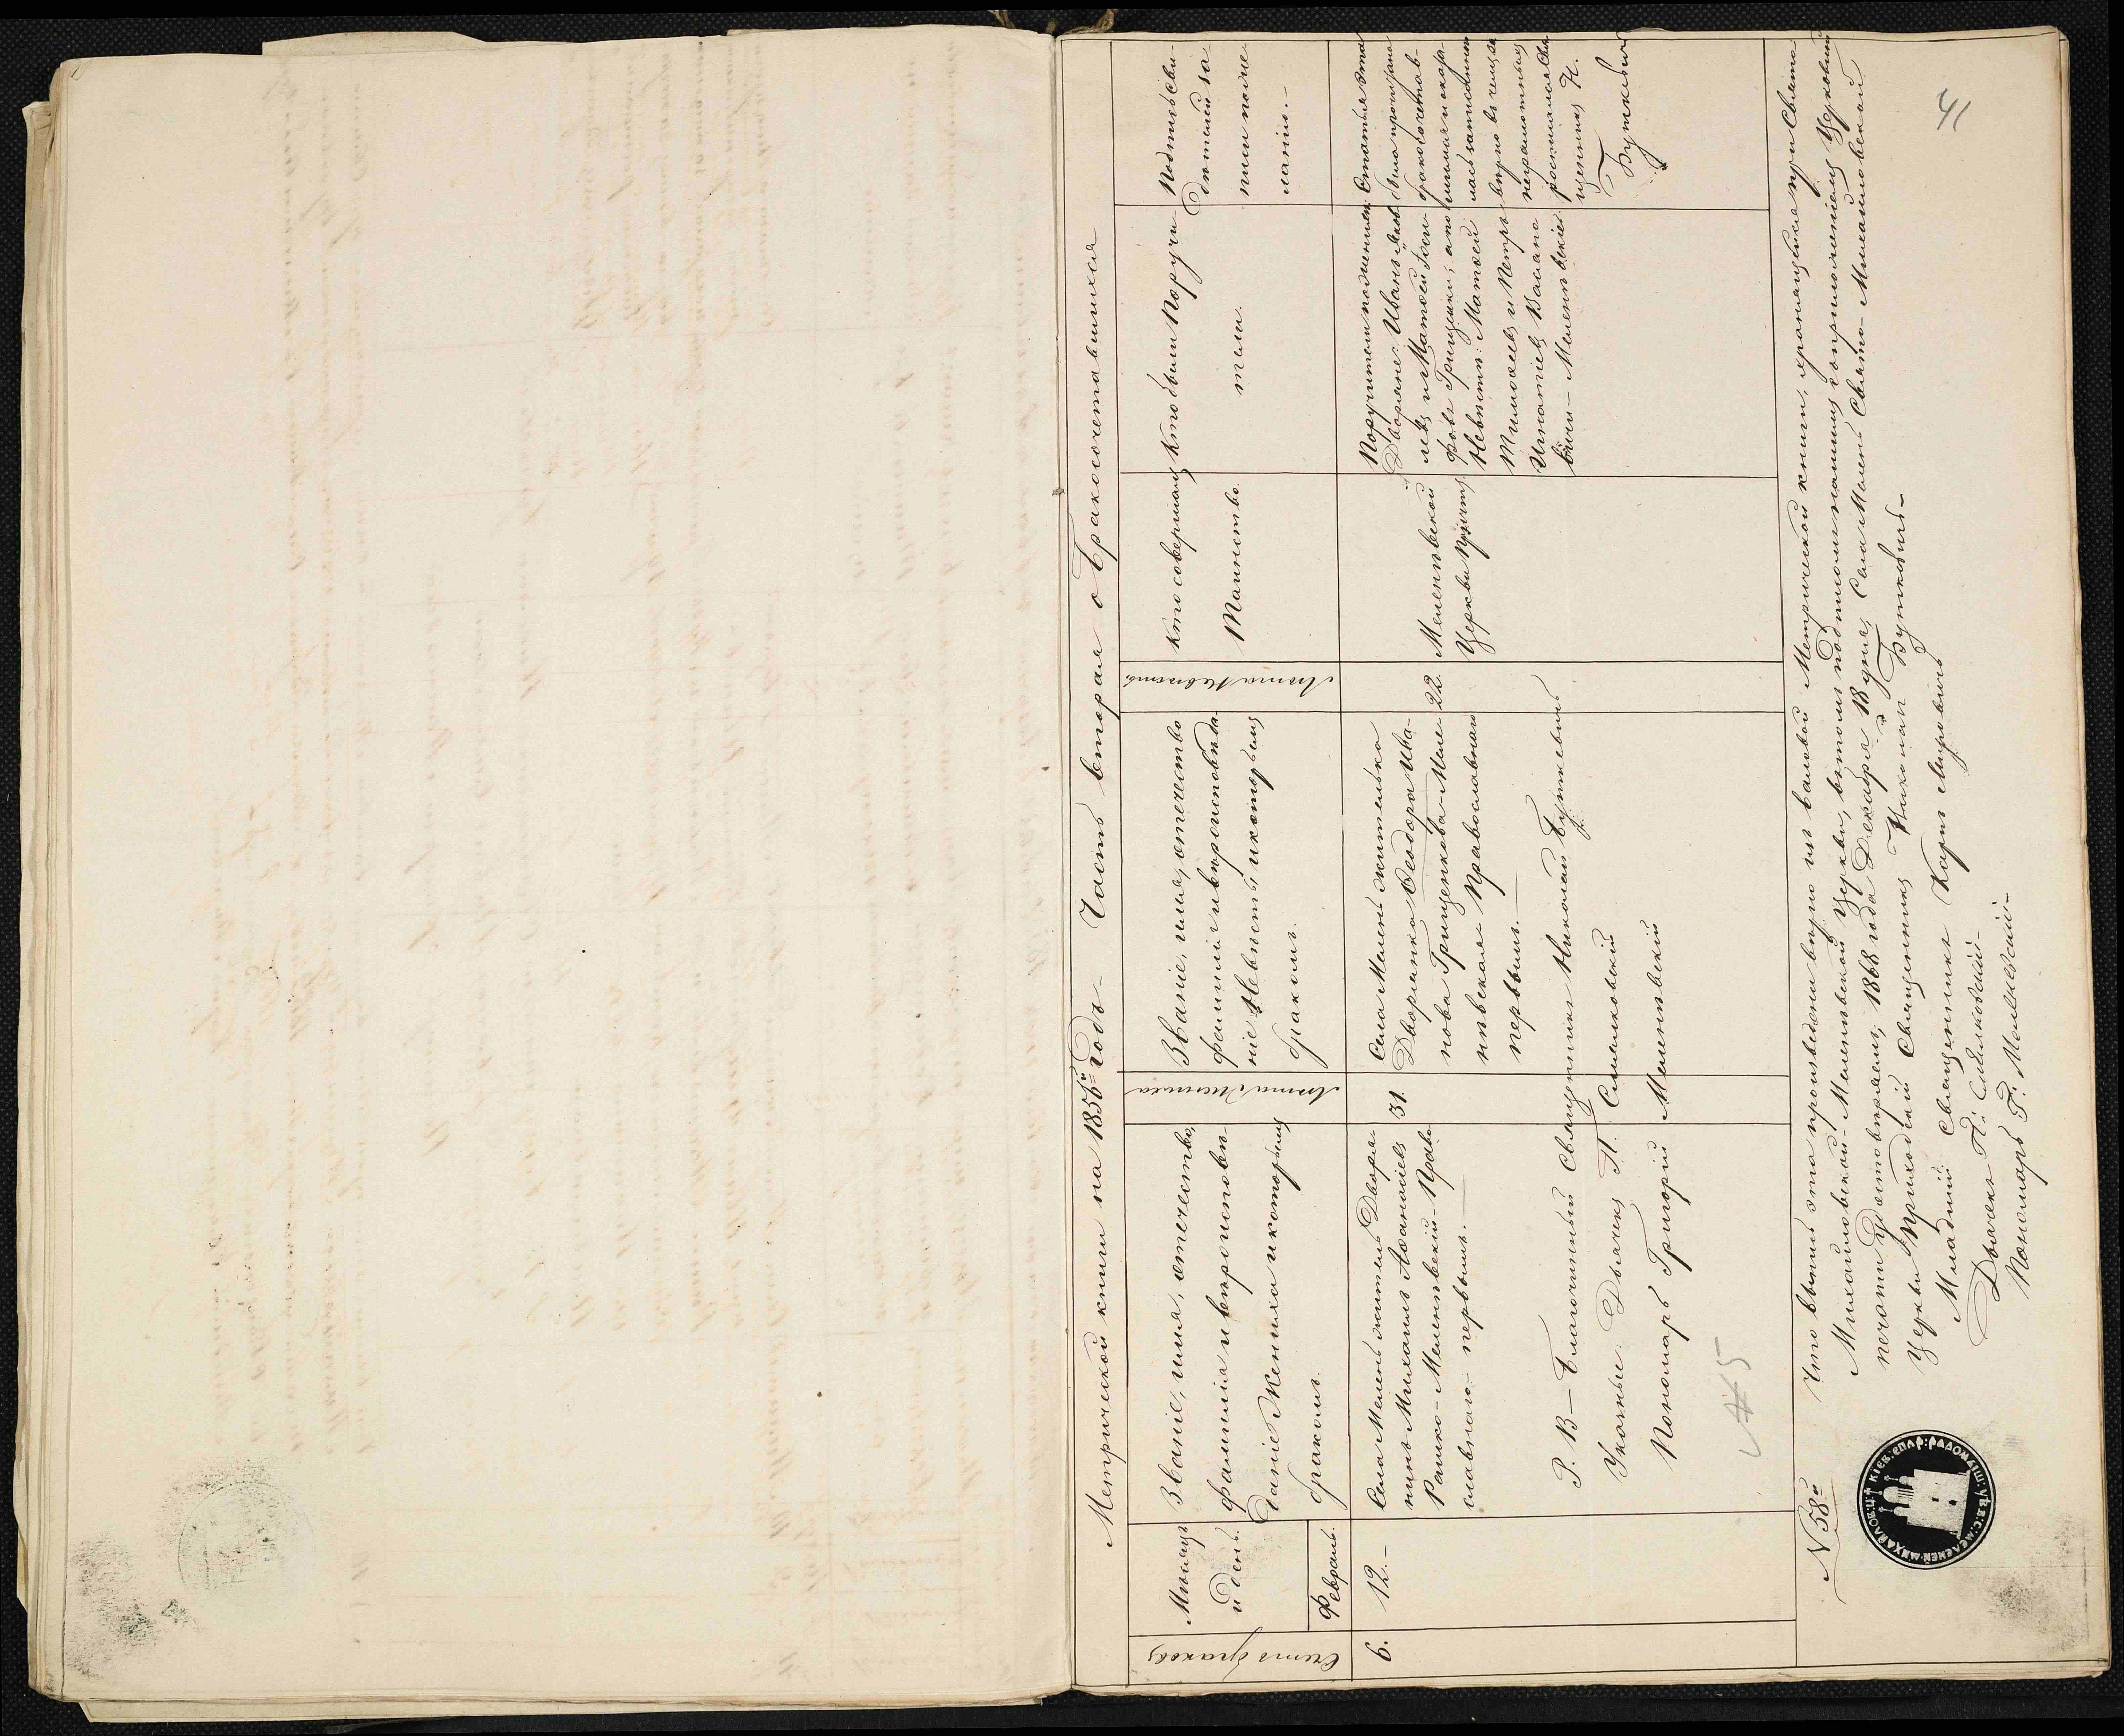 41
Метрической книги на 1856й годъ - Часть вторая о бракосочетавшихся
Счетъ браковъ
Мѣсяцъ
и день.
Февраль.
Званіе, имя, отечество,
фамилія и вѣроисповѣ-
даніе Жениха и которымъ
бракомъ.
Лѣта Жениха
Званіе, имя, отечество
фамилія и вѣроисповѣда-
ніе Невѣсты и которымъ
бракомъ.
Лѣта Невѣсты
Кто совершалъ
Таинство.
Кто были Поручи-
тели.
Подпись сви-
дѣтелей за-
писи по же-
ланію.-
6.
12.-
Села Мелень житель Дворя
нинъ Михаилъ Аѳанасіевъ
Рашко-Меленѣвскій-Право-
славнаго- первымъ.-
31.
Села Мелень жителька
Дворянка Ѳеодора Ива-
нова Грищенкова-Меле-
нѣвская Православнаго
первымъ.
22.
Меленѣвской
Церкви Причтъ
Поручители по Женихѣ:
Дворяне: Иванъ Яков
левъ и Матѳей Іоси
фовъ Грищенки; а по
Невѣстѣ: Матѳей
Тимоѳеевъ и Петръ
Игнатіевъ Васьяно
вичи-Меленѣвскіе.
Статья эта
была прочитана
бракосочетав-
шимся и оказа-
лась записанною
вѣрно въ чемъ за
неграмотныхъ
росписался Свя
щенникъ Н.
Буткевичъ
Р. В - Благочинный Священникъ Николай Буткевичъ
Указные. Дьячекъ П. Смилковскій
Пономарь Григорій Меленевскій
№5
N 58й
Что выпись эта произведена вѣрно изъ валовой Метрической книги, хранящейся при Свято
Михайловской-Меленѣвской Церкви, въ томъ подписомъ нашимъ съ приложеніемъ Церковной
печати Удостовѣряемъ, 1868 года Декабря 18 дня, Села Мелени Свято-Михайловской
Церкви Приходскій Священникъ Николай Буткевичъ-
Младшій Священникъ Карпъ Мировичъ
Дьячекъ П. Смилковскій-
Пономарь Г. Меленевскій-